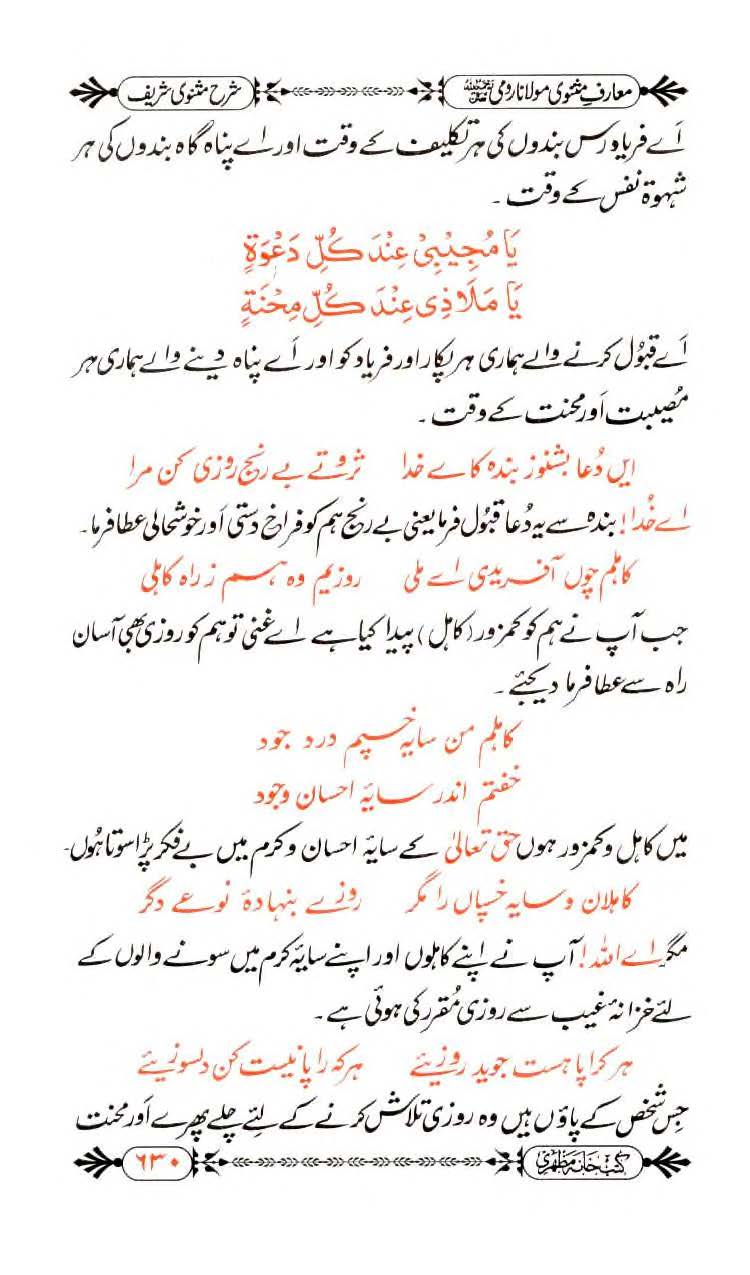 معارفِ مثنوی مولانا رومی رحمۃ اللہ علیہ شرح مثنوی شریف
اَے فریاد رس بندوں کی ہر تکلیف کے وقت اور اے پناہ گاہ بندوں کی ہر
شہوۃِ نفس کے وقت ۔
يَا مُجِيْبِيْ عِنْدَ كُلِّ دَعْوَةٍ
يَا مَلَاذِي عِنْدَ كُلِّ مِحْنَةٍ
اَے قبُول کرنے والے ہماری ہر پکار اور فریاد کو اور اَے پناہ دینے والے ہماری ہر
مُصیبت اَور محنت کے وقت ۔
ایں دُعا بشنوز بندہ کاے خدا ثروتے بے رنج روزی کن مرا
اے خُدا! بندہ سے یہ دُعا قبُول فرما یعنی بے رنج ہم کو فراخ دستی اَور خوشحالی عطا فرما۔
کاہلم چوں آفریدی اے ملی روزیم دہ ہسم ز راہ کاہلی
جب آپ نے ہم کو کمزور (کاہل) پیدا کیا ہے اے غنی تو ہم کو روزی بھی آسان
راہ سے عطا فرما دیجئے ۔
کاہلم من سایہ خسپم درد جود
خفتم اندر سایۂ احسان وجود
میں کاہل و کمزور ہوں حق تعالیٰ کے سایۂ احسان و کرم میں بے فکر پڑا سوتا ہُوں۔
کاہلان و سایہ خسپاں را مگر روزے بنہادۂ نوعے دگر
مگر اے اللہ! آپ نے اپنے کاہلوں اور اپنے سایۂ کرم میں سونے والوں کے
لئے خزانۂ غیب سے روزی مُقرر کی ہوئی ہے ۔
ہر کرا پا ہست جوید روزیئے ہر کہ را پا نیست کن دلسوزیئے
جِس شخص کے پاؤں ہیں وہ روزی تلاش کرنے کے لئے چلے پھرے اَور محنت
کتب خانہ مظہری ۶۳۰